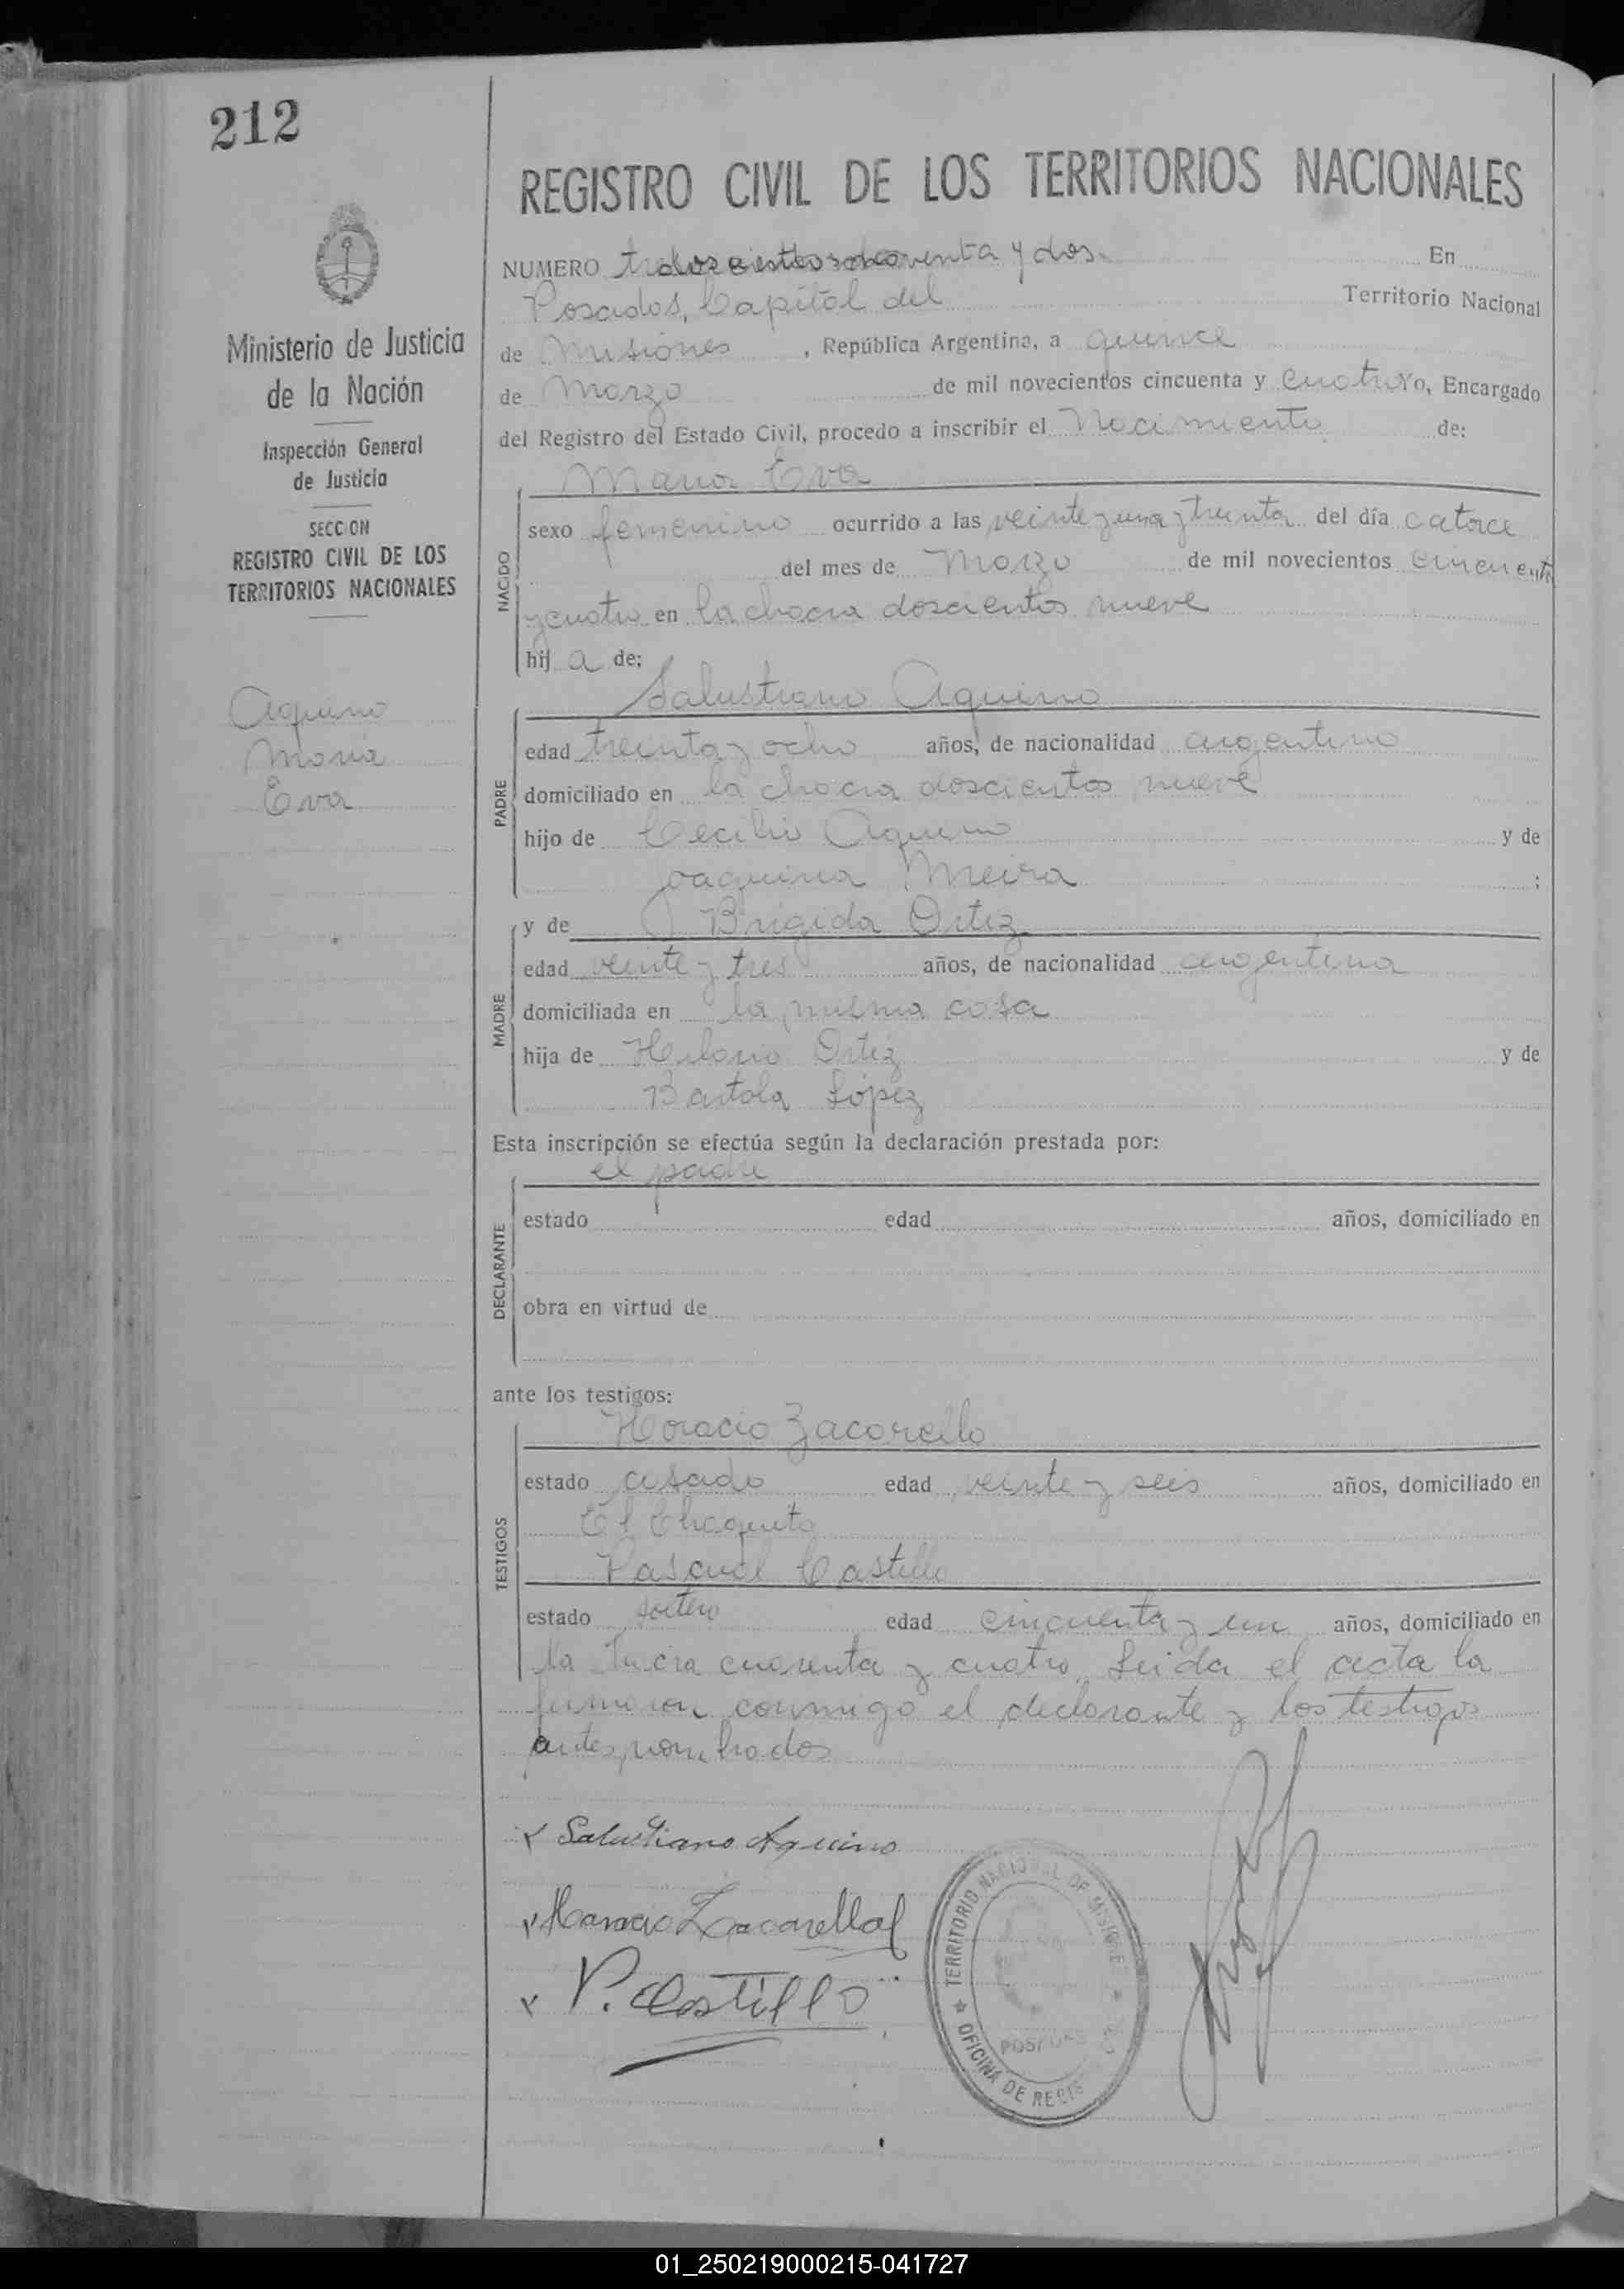 212
REGISTRO CIVIL DE LOS TERRITORIOS NACIONALES
Ministerio de Justicia
de la Nación
Inspección General
de Justicia
SECCION
REGISTRO CIVIL DE LOS
TERRITORIOS NACIONALES
Aquino
Maria
Eva
NUMERO y dos. En
Posadas, Capital del Territorio Nacional
de Misiones, República Argentina, a quince
de Marzo de mil novecientos cincuenta y cuatro Yo, Encargado
del Registro del Estado Civil, procedo a inscribir el Nacimiento de:
NACIDO
Maria Eva
sexo femenino ocurrido a las veinte y una y treinta del día catorce
del mes de Marzo de mil novecientos cincuenta
y cuatro en la chacra doscientos nueve
hij a de:
PADRE
Salustiano Aquino
edad treinta y ocho años, de nacionalidad argentino
domiciliado en la chacra doscientos nueve
hijo de Cecilio Aquino y de
Joaquina Meira ;
MADRE
y de Brigida Ortiz
edad veinte y tres años, de nacionalidad argentina
domiciliada en la misma casa
hija de Ortiz y de
Bartola López
Esta inscripción se efectúa según la declaración prestada por:
DECLARANTE
el padre
estado edad años, domiciliado en
obra en virtud de
ante los testigos:
TESTIGOS
Horacio Zacarello
estado casado edad veinte y seis años, domiciliado en
El Chaquito
Pascual Castillo
estado soltero edad cincuenta y un años, domiciliado en
la cuarenta y cuatro. Leida el acta la
firmaron conmigo el declarante y los testigos
antes nombrados
x Salustiano Aquino
x Horacio Zacarella
x P. Castillo
TERRITORIO NACIONAL DE MISIONES
OFICINA DE REGIS
POSADAS
01_250219000215-041727